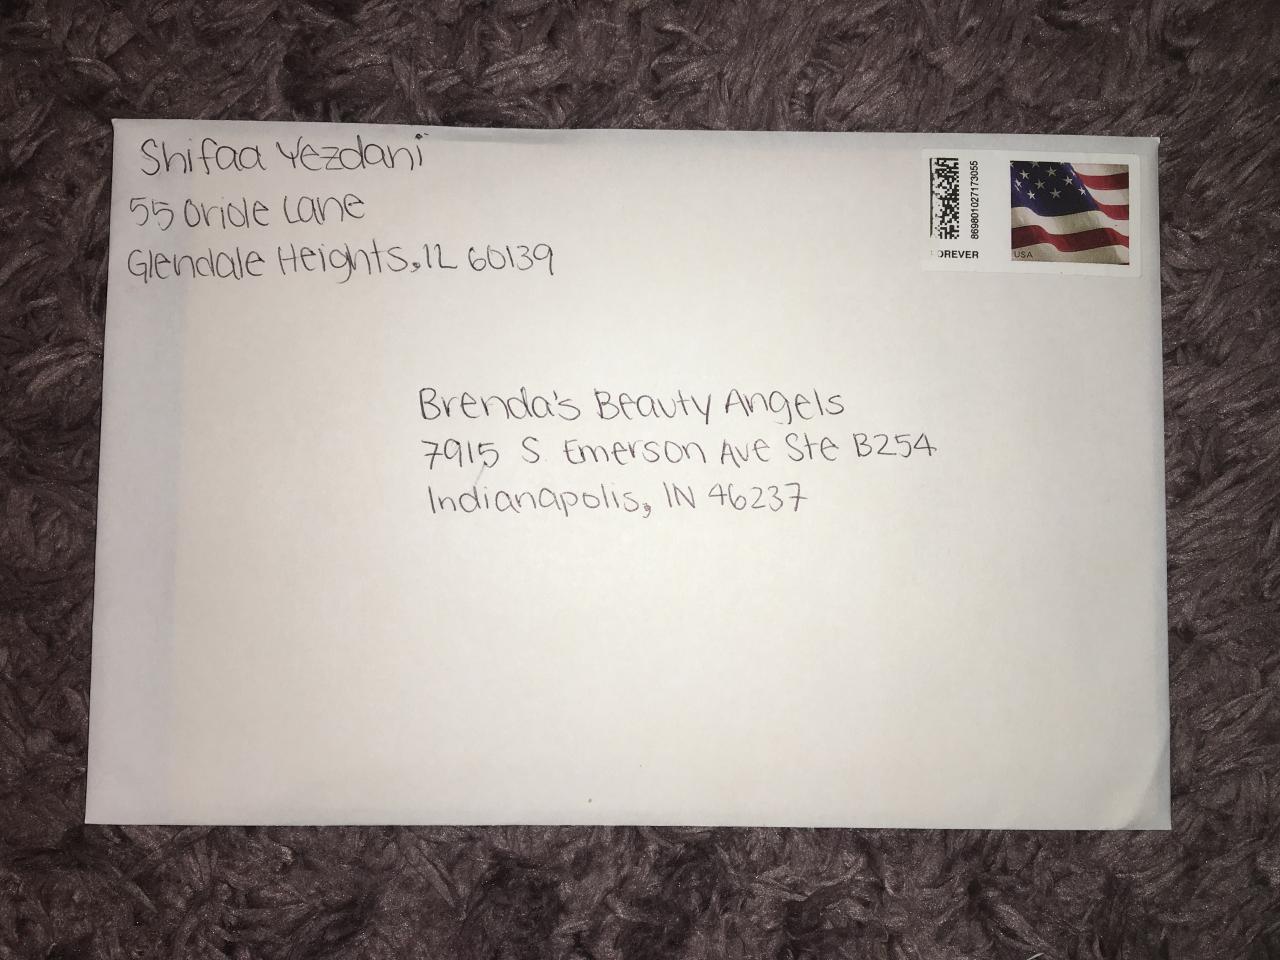 Shifaa Yezdani
55 Oriole Lane
Glendale Heights, IL 60139
869801027173055
OREVER
USA
Brenda's Beauty Angels
7915 S Emerson Ave Ste B254
Indianapolis, IN 46237